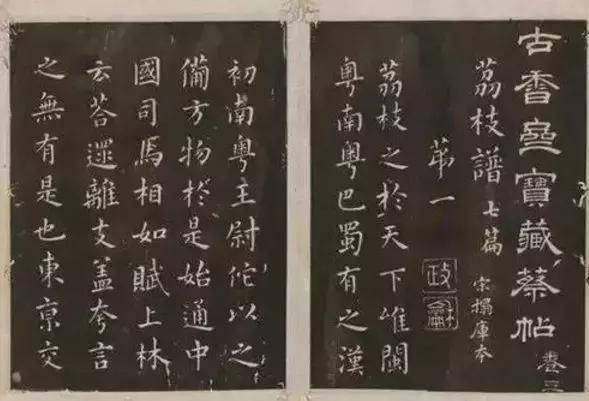 古香齋寶藏蔡帖 卷三
荔枝譜 七篇 宋搨庫本
苐一 政龢
荔枝之於天下唯閩
粤南粤巴蜀有之漢
初南粤王尉佗以之
備方物於是始通中
國司馬相如賦上林
云荅遝離支蓋夸言
之無有是也東京交